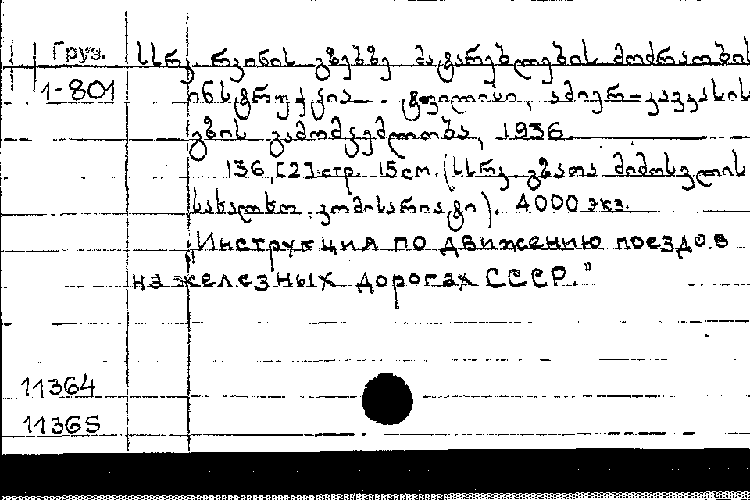 Груз. სსრკ რკინის გზებზე მატარებლების მოძრაობის
1-801 ინსტრუქცია. ტფილისი, ამიერ-კავკასიის
გზის გამომცემლობა, 1936.
136,[2]стр. 15см. (სსრკ გზათა მიმოსვლის
სახალხო კომისარიატი). 4000 экз.
„Инструкция по движению поездов
на железных дорогах СССР."
11364
11365